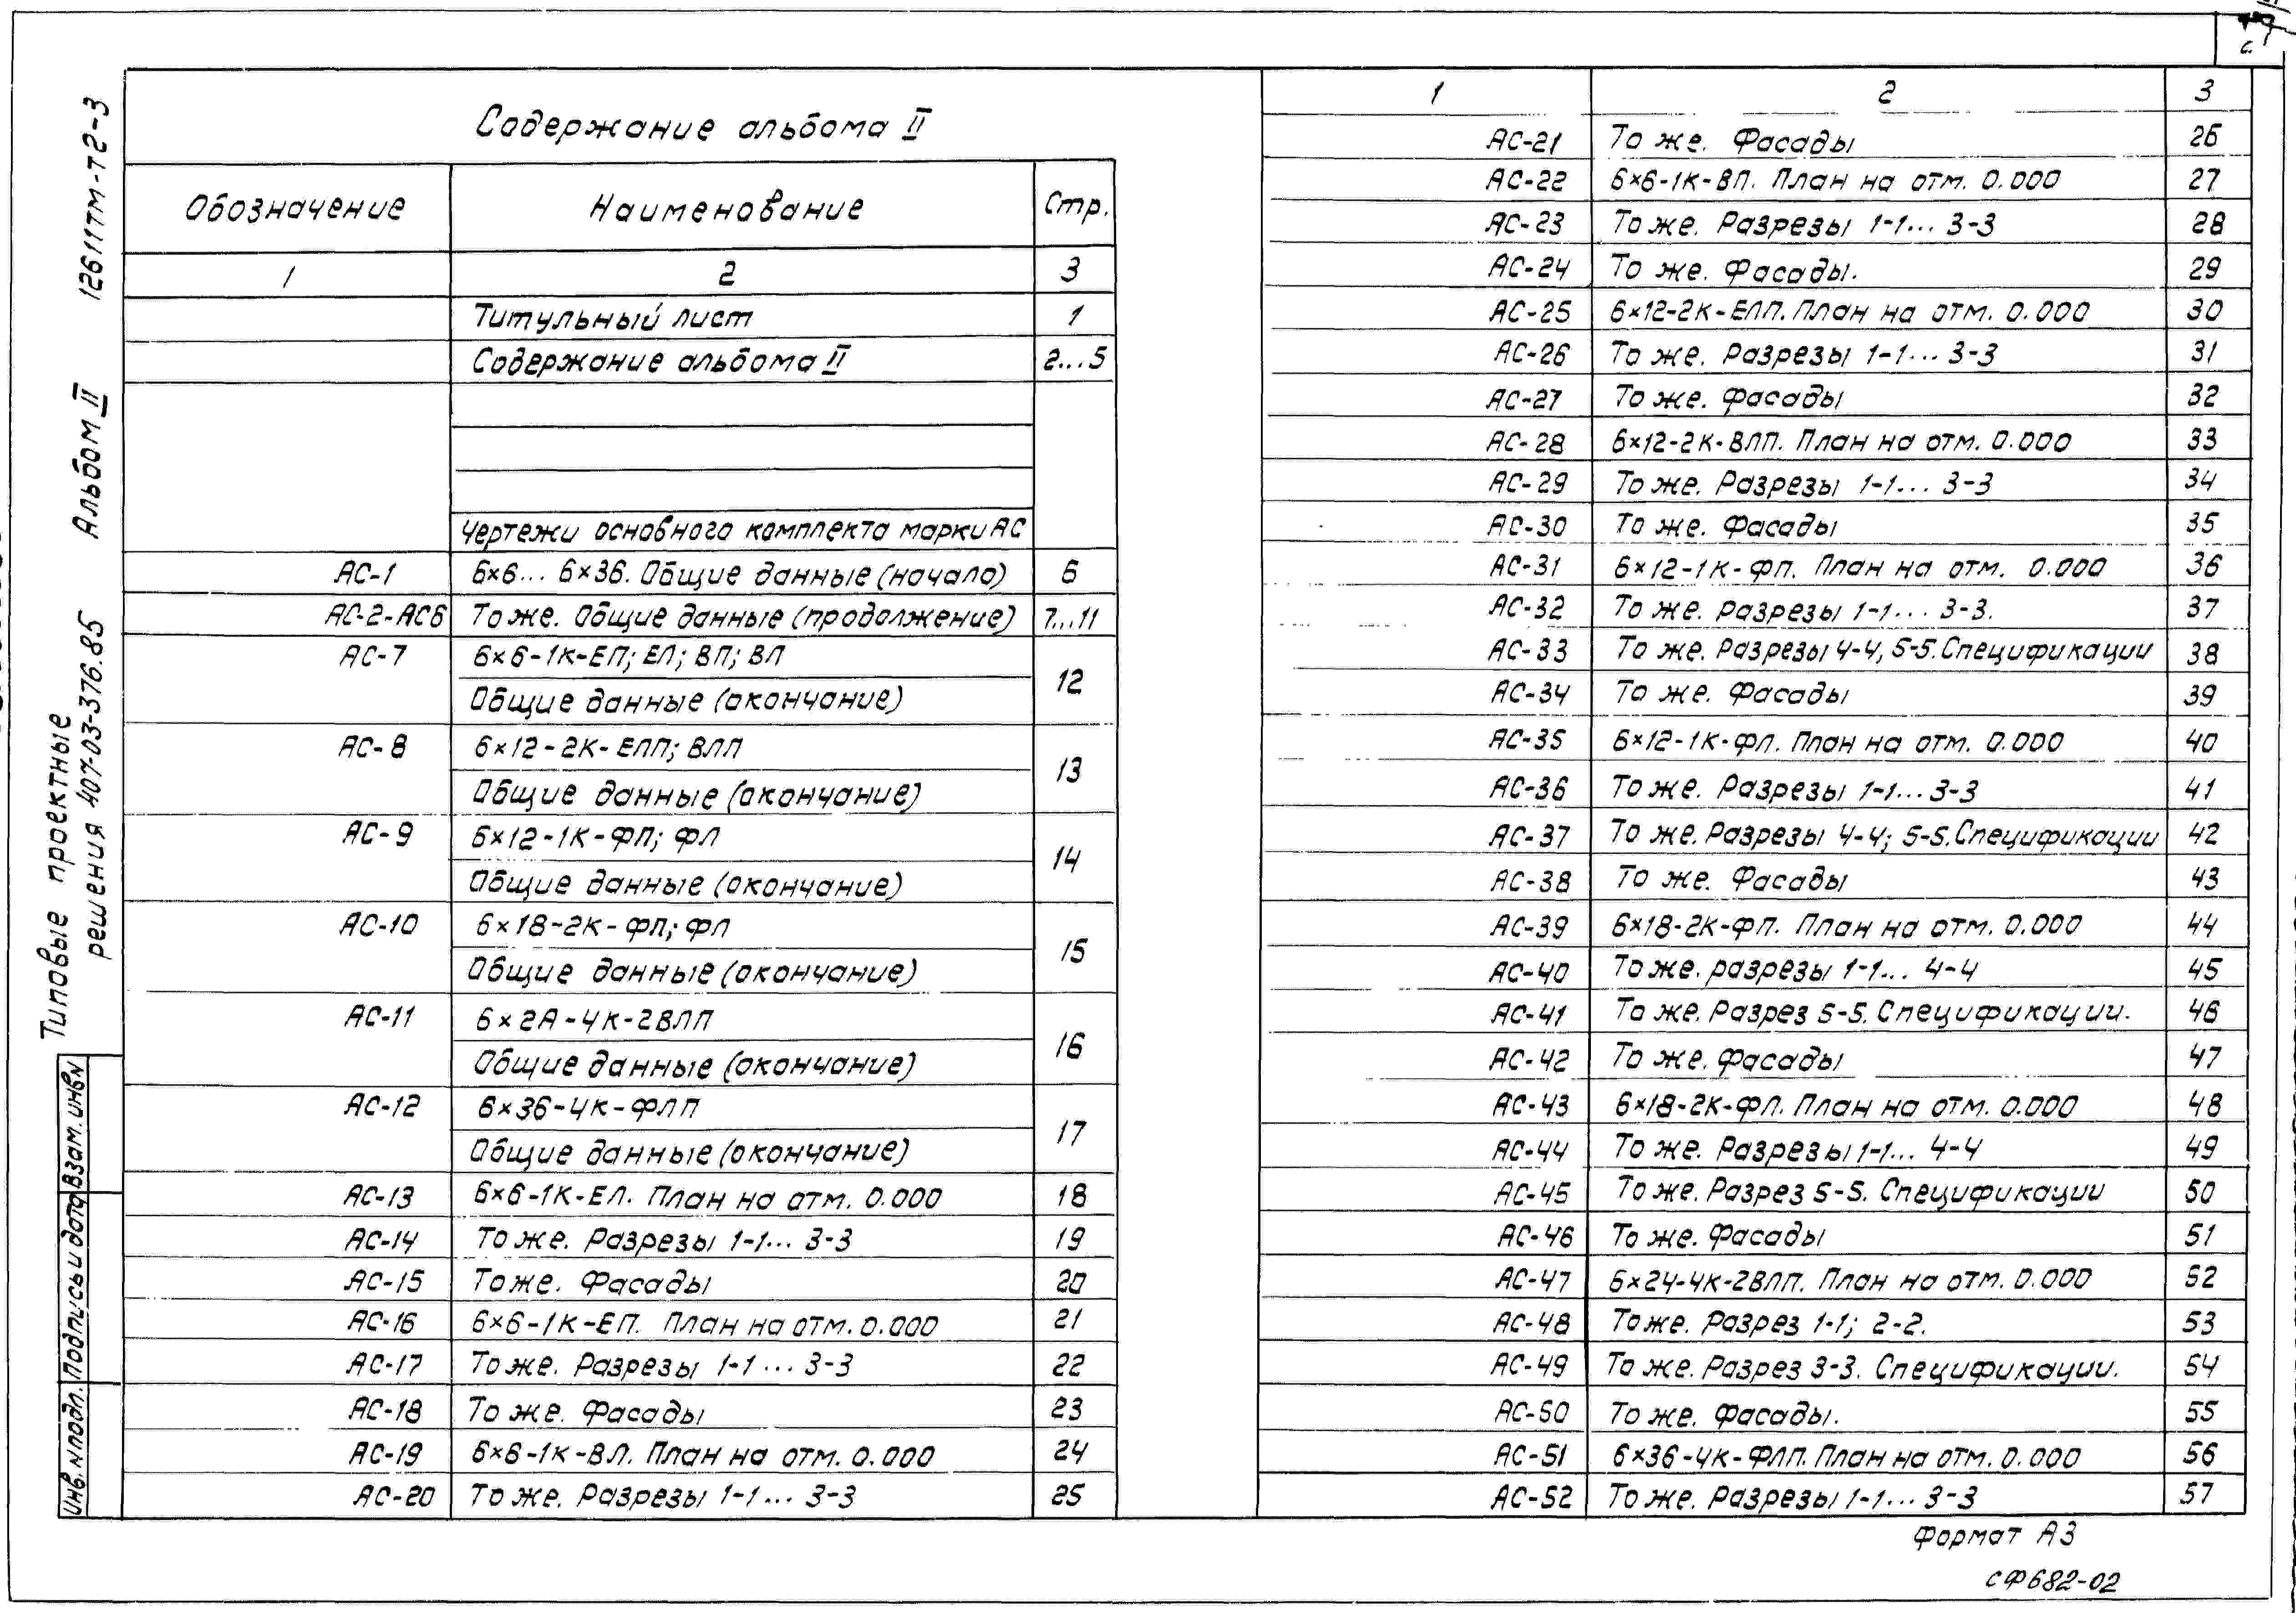 Содержание альбома II
Обозначение Наименование Стр.
1 2 3
Титульный лист 1
Содержание альбома II 2...5
Чертежи основного комплекта марки АС
АС-1 6×6... 6×36. Общие данные (начало) 6
АС-2-АС6 То же. Общие данные (продолжение) 7...11
АС-7 6×6-1К-ЕП; ЕЛ; ВП; ВЛ
Общие данные (окончание) 12
АС-8 6×12-2К-ЕЛП; ВЛП
Общие данные (окончание) 13
АС-9 6×12-1К-ФП; ФЛ
Общие данные (окончание) 14
АС-10 6×18-2К-ФП; ФЛ
Общие данные (окончание) 15
АС-11 6×2А-4К-2ВЛП
Общие данные (окончание) 16
АС-12 6×36-4К-ФЛП
Общие данные (окончание) 17
АС-13 6×6-1К-ЕЛ. План на отм. 0.000 18
АС-14 То же. Разрезы 1-1... 3-3 19
АС-15 То же. Фасады 20
АС-16 6×6-1К-ЕП. План на отм. 0.000 21
АС-17 То же. Разрезы 1-1... 3-3 22
АС-18 То же. Фасады 23
АС-19 6×6-1К-ВЛ. План на отм. 0.000 24
АС-20 То же. Разрезы 1-1... 3-3 25
1 2 3
АС-21 То же. Фасады 26
АС-22 6×6-1К-ВП. План на отм. 0.000 27
АС-23 То же. Разрезы 1-1... 3-3 28
АС-24 То же. Фасады. 29
АС-25 6×12-2К-ЕЛП. План на отм. 0.000 30
АС-26 То же. Разрезы 1-1... 3-3 31
АС-27 То же. Фасады 32
АС-28 6×12-2К-ВЛП. План на отм. 0.000 33
АС-29 То же. Разрезы 1-1... 3-3 34
АС-30 То же. Фасады 35
АС-31 6×12-1К-ФП. План на отм. 0.000 36
АС-32 То же. Разрезы 1-1... 3-3. 37
АС-33 То же. Разрезы 4-4, 5-5. Спецификации 38
АС-34 То же. Фасады 39
АС-35 6×12-1К-ФЛ. План на отм. 0.000 40
АС-36 То же. Разрезы 1-1... 3-3 41
АС-37 То же. Разрезы 4-4; 5-5. Спецификации 42
АС-38 То же. Фасады 43
АС-39 6×18-2К-ФП. План на отм. 0.000 44
АС-40 То же. разрезы 1-1... 4-4 45
АС-41 То же. Разрез 5-5. Спецификации. 46
АС-42 То же. Фасады 47
АС-43 6×18-2К-ФЛ. План на отм. 0.000 48
АС-44 То же. Разрезы 1-1... 4-4 49
АС-45 То же. Разрез 5-5. Спецификации 50
АС-46 То же. Фасады 51
АС-47 6×24-4К-2ВЛП. План на отм. 0.000 52
АС-48 То же. Разрез 1-1; 2-2. 53
АС-49 То же. Разрез 3-3. Спецификации. 54
АС-50 То же. Фасады. 55
АС-51 6×36-4К-ФЛП. План на отм. 0.000 56
АС-52 То же. Разрезы 1-1... 3-3 57
Формат А3
СФ682-02
Типовые проектные
решения 407-03-376.85 Альбом II 12611ТМ-Т2-3
Инв. № подл. Подпись и дата Взам. инв №
с.